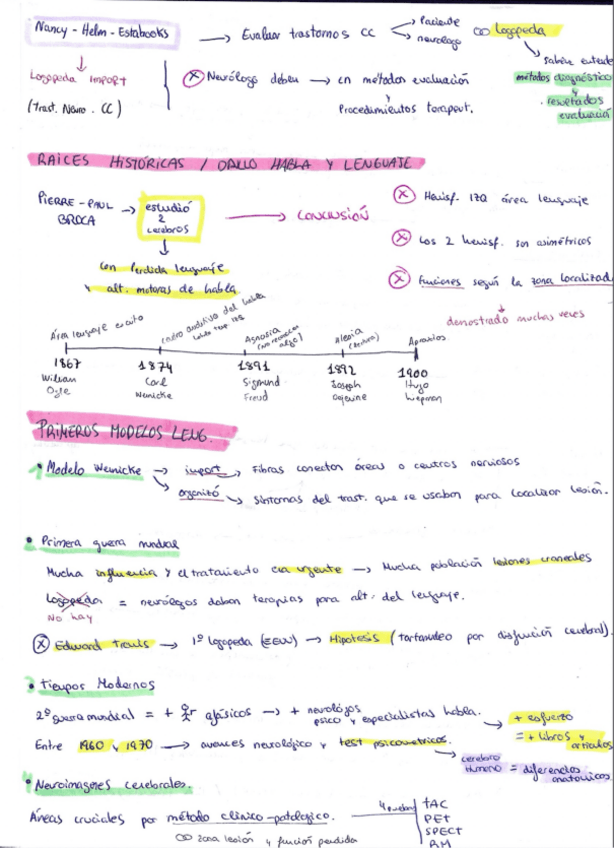 Nancy - Helm - Estabooks → Evaluar trastornos CC → Paciente
→ neurólogo
logopeda
Logopeda import
(Trast. Neuro. CC)
Neurólogo deben → en métodos evaluación
y
Procedimientos terapeut.
métodos diagnóstico
y
resultados
evaluación
RAICES HISTÓRICAS / DALLO HABLA Y LENGUAJE
PIERRE - PAUL
BROCA
→ estudió
2
cerebros
→ CONCLUSIÓN
con perdida lenguaje
y alt. motoras de habla
Hemisf. IZQ área lenguaje
Los 2 hemisf. son asimétricos
Funciones según la zona localizad
demostrado muchas veces
Área lenguaje escrito
centro auditivo del habla
Agnosia
Alexia
(lectura)
Apraxias
1867 1874 1891 1892 1900
Wilian
Ogle
Carl
Wernicke
Sigmund
Freud
Joseph
Dejerine
Hugo
Liepman
PRIMEROS MODELOS LENG.
• Modelo Wernicke → import → Fibras conectan áreas o centros nerviosos
→ organizó → Síntomas del trast. que se usaban para localizar lesión.
• Primera guerra mundial
Mucha influencia y el tratamiento era urgente → Mucha población lesiones craneales
Logopeda = neurólogos daban terapias para alt. del lenguaje.
No hay
Edward Travis → 1º logopeda (EEUU) → Hipotesis (tartamudeo por disfunción cerebral).
• Tiempos Modernos
2º guerra mundial = + afásicos → + neurológos
psico y especialistas habla.
→ + esfuerzo
= + libros y
artículos
Entre 1960 y 1970 → avances neurológico y test psicometricos.
→ cerebro
Humano = diferencias
anatomicas
• Neuroimagenes cerebrales.
Áreas cruciales por método clínico-patologico.
zona lesión y función perdida
4 pruebas
TAC
PET
SPECT
RM